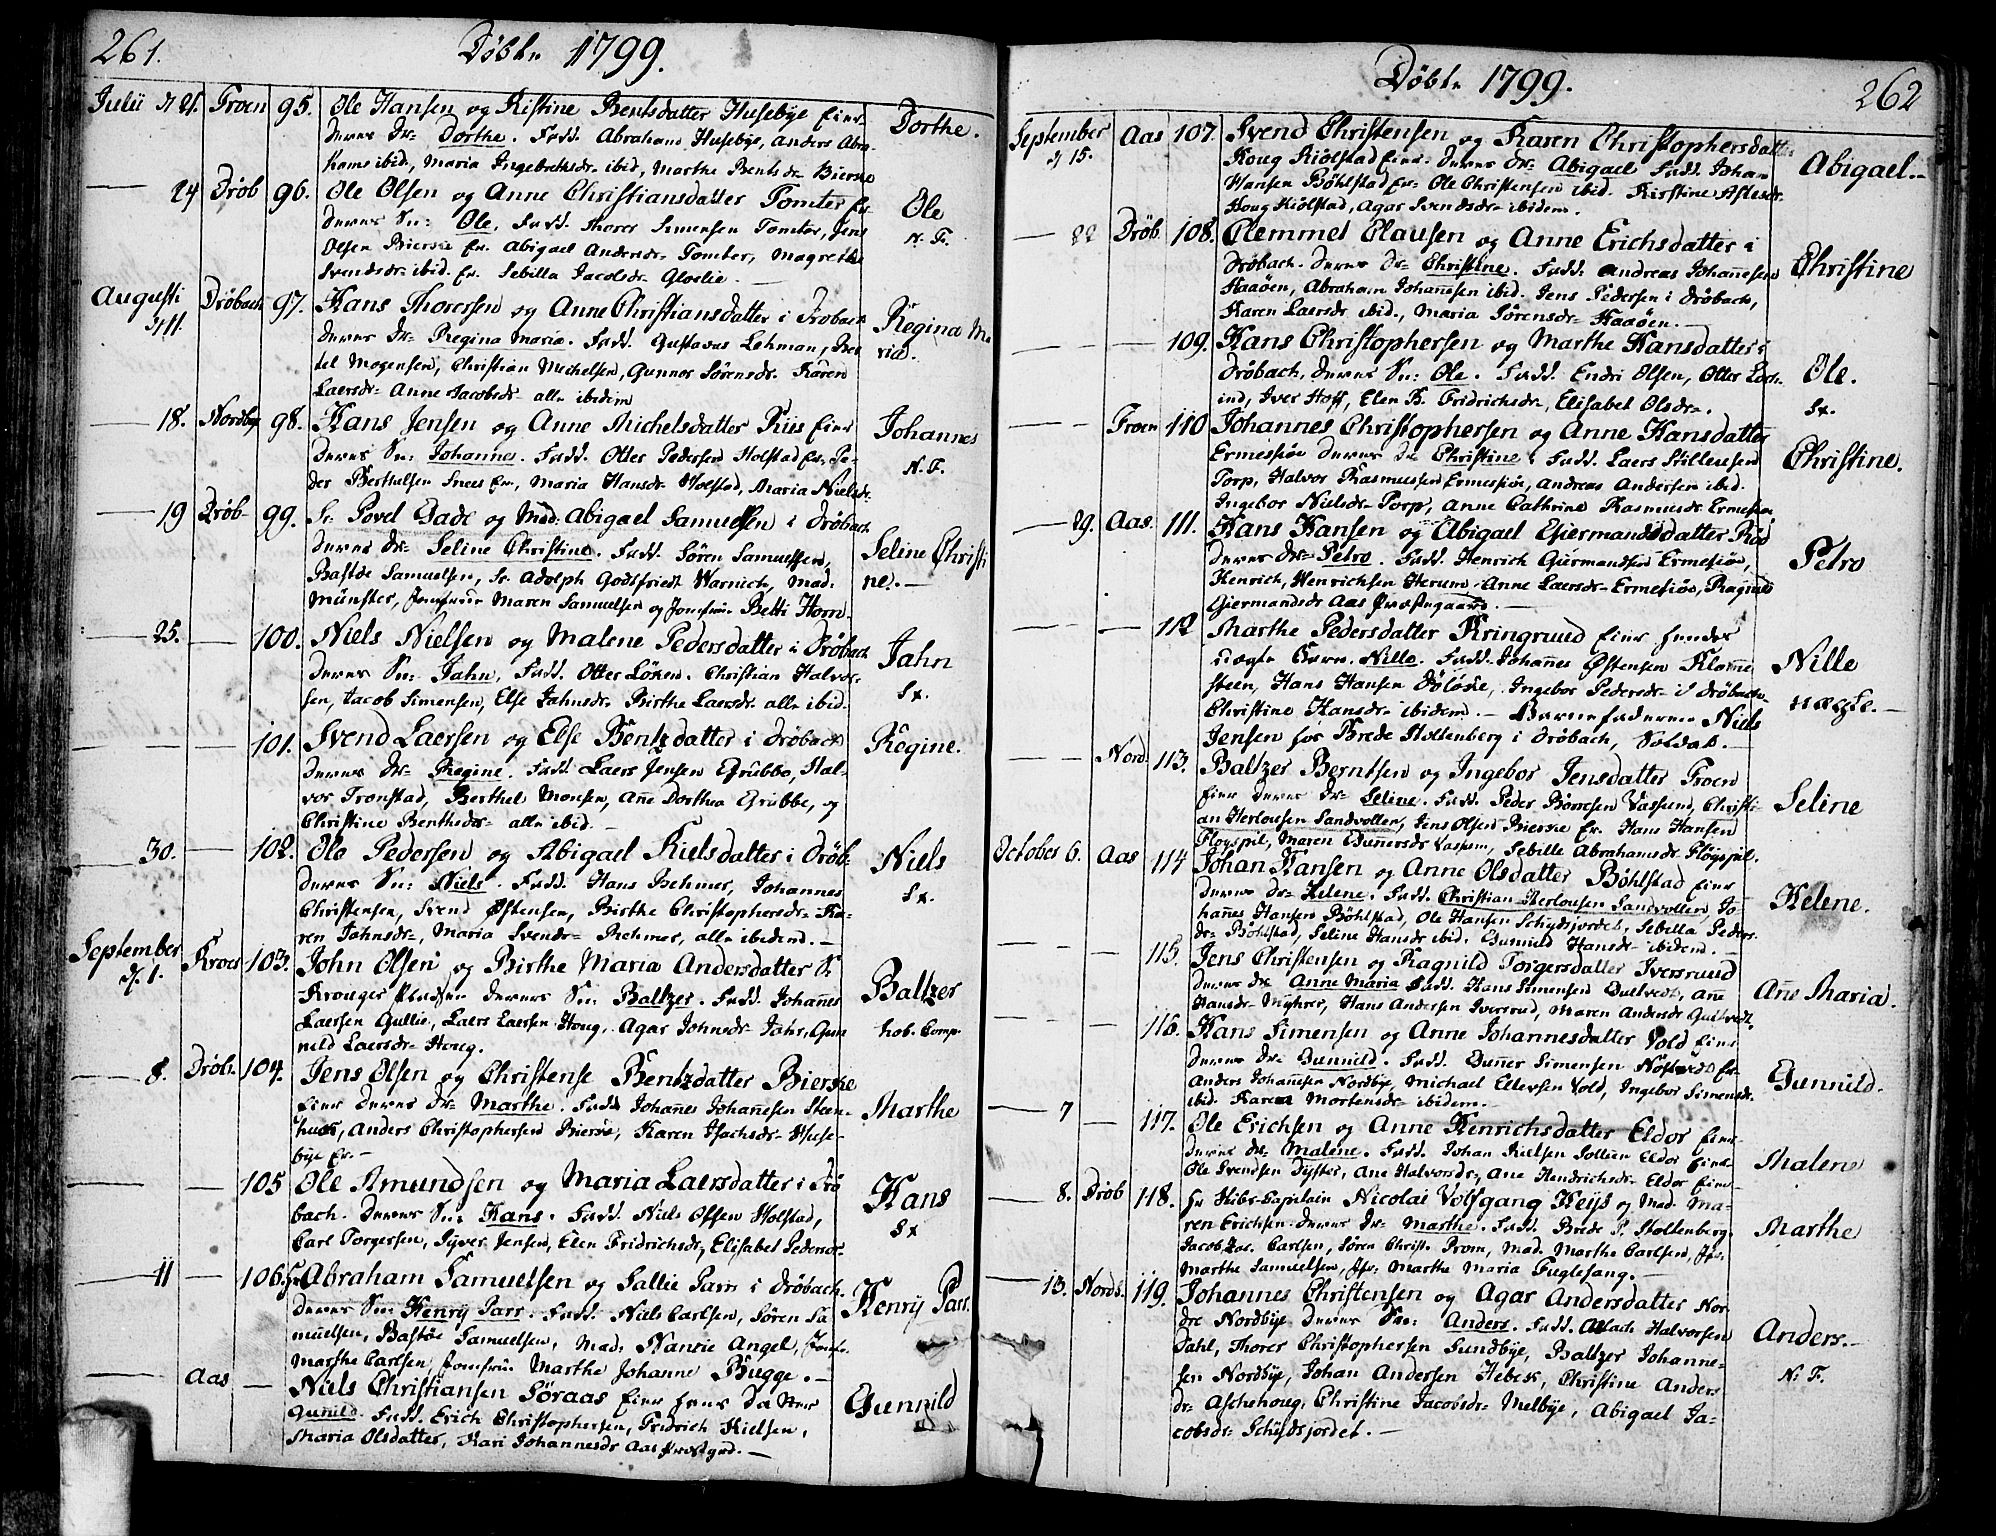 261.
Döbte 1799.
Julii d 21. Froen 95. Ole Hansen og Kistine Bentsdatter Husebÿe Eier
deres Dr: Dorthe. Fadd. Abraham Husebÿe, Anders Abra-
hams ibid, Maria Ingebrethsdr ibid, Marthe Bentsdr Bierke
Dorthe.
24 Dröb 96. Ole Olsen og Anne Christiansdatter Tomter Er
deres Sn: Ole. Fadd. Thorer Simensen Tomter, Jens
Olsen Bierke Er. Abigael Andersdr Tomter, Magrethe
Svendsdr ibid. Er. Sebilla Jacobsdr Gloslie.
Ole
N. F.
Augusti d 11. Dröbach 97. Hans Thoresen og Anne Christiansdatter i Dröbach
deres Dr: Regina Maria. Fadd. Gustavus Lehman, Ber
tel Mogensen, Christian Michelsen, Gunnor Sörensdr. Karen
Laersdr. Anne Jacobsdr alle ibidem
Regina Ma
ria.
18. Nordbÿ 98. Hans Jensen og Anne Michelsdatter Riis Eier
deres Sn: Johannes. Fadd. Otter Pedersen Holstad Er. Pe-
der Berthelsen Snees Er, Maria Hansdr Holstad, Maria Nielsdr.
Johannes
N. F.
19 Dröb 99. Sr. Povel Gade og Mad. Abigael Samuelsen i Dröbach
deres Dr. Seline Christine. Fadd. Sören Samuelsen,
Bastöe Samuelsen, Sr. Adolph Godtfriedt Warnich, Mad.
Münster, Jomfrue Maren Samuelsen og Jomfrue Betti Horn.
Seline Christi
ne.
25. 100. Niels Nielsen og Malene Pedersdatter i Dröbach
deres Sn: Jahn. Fadd. Otter Löken. Christian Halvor-
sen, Jacob Simensen, Else Jahnsdr. Birthe Laersdr. alle ibid.
Jahn
Sx.
101. Svend Laersen og Else Bentzdatter i Dröbach
deres Dr. Regine. Fadd. Laers Jensen Grubbe, Hal-
vor Tronstad, Berthel Monsen, Añe Dorthea Grubbe, og
Christine Benthsdr alle ibid.
Regine.
30. 102. Ole Pedersen og Abigael Kielsdatter i Dröb.
deres Sn: Niels. Fadd. Hans Behmer, Johannes
Christensen, Svend Östensen, Birthe Christophersdr Ka-
ren Jahnsdr, Maria Svendr Behmer, alle ibidem.
Niels
Sx.
September d. 1. Kroer 103. John Olsen og Birthe Maria Andersdatter
deres Sn: Baltzer. Fadd. Johañes
Laersen Gullie, Laers Laersen Houg, Agar Johnsdr Jahr, Gun
nild Laersdr Houg.
Baltzer
hob. Comp.
8. Dröb. 104. Jens Olsen og Christense Bentzdatter Bierke
Eier deres Dr Marthe. Fadd Johañes Johañesen Steen-
huus, Anders Christophersen Bierke, Karen Isachsdr Huse-
bÿe Er.
Marthe
105 Ole Amundsen og Maria Laersdatter i Drö
bach. deres Sn: Hans. Fadd. Niels Olsen Holstad,
Carl Torgersen, Syver Jensen, Elen Fridrichsdr, Elisabet Pedersdr.
Hans
Sx
11 106. Hr Abraham Samuelsen og Sallie Parr i Dröbach
deres Sn: Henrÿ Parr. Fadd. Niels Carlsen, Sören Sa
muelsen, Bastöe Samuelsen, Mad. Nancie Angel, Jomfr.
Marthe Carlsen Jomfrue Marthe Johanne Bugge.
Henrÿ Parr.
Aas Niels Christiansen Söraas Eier hans Datter
Guñild. Fadd. Erich Christophersen, Fridrich Kielsen,
Maria Olsdatter, Kari Johannesdr Aas Præstgrd.
Gunnild
Döbte 1799.
262
September d 15. Aas 107. Svend Christensen og Karen Christophersdatter
Houg Kiölstad Eier. deres Dr. Abigael Fadd. Johan
Hansen Böhlstad Er. Ole Christensen ibid. Kirstine Aslesdr.
Houg Kiölstad, Agar Svendsdr ibidem.
Abigael.
22 Dröb. 108. Clemmet Clausen og Anne Erichsdatter i
Dröbach. deres Dr. Christine. Fadd. Andreas Johañesen
Haaöen, Abraham Johañesen ibid. Jens Pedersen i Dröbach,
Karen Laersdr ibid, Maria Sörensdr Haaöen.
Christine
109. Hans Christophersen og Marthe Hansdatter i
Dröbach. deres Sn: Ole. Fadd. Endri Olsen, Otter Loch-
ind, Iver Hoff, Elen K. Fridrichsdr, Elisabet Olsdr.
Ole.
Sx.
Froen 110 Johannes Christophersen og Anne Hansdatter
Ermesiöe deres Dr Christine. Fadd. Laers Stillevsen
Torp, Halvor Rasmussen Ermesiöe, Andreas Andersen ibid.
Ingebor Nielsdr Torp, Anne Cathrine Rasmusdr Ermesiöe
Christine.
29. Aas. 111. Hans Hansen og Abigael Giermandsdatter Röd
deres Dr Petro. Fadd. Henrich Giermandsen Ermesiöe,
Henrich Henrichsen Herum, Anne Laersdr Ermesiöe, Ragnild
Giermandsdr Aas Præstegaard.
Petro
112 Marthe Pedersdatter Kringrud Eier hendes
uægte Barn. Nille. Fadd. Johañes Östensen Klomme
steen, Hans Hansen Dölöske, Ingebor Pedersdr i Dröbach
Christine Hansdr ibidem. Barnefaderen Niels
Jensen hos Brede Stoltenberg i Dröbach, Soldat.
Nille
uægte.
Nord. 113. Baltzer Berntsen og Ingebor Jensdatter Froen
Eier deres Dr Seline. Fadd. Peder Börresen Vassum, Christi-
an Herlousen Sandvollen, Jens Olsen Bierke Er. Hans Hansen
Flöyspil, Maren Gunersdr Vassum, Sebille Abrahamsdr Flöyspil.
Seline
October 6. Aas 114 Johan Hansen og Anne Olsdatter Böhlstad Eier
deres Dr Helene. Fadd. Christian Herlousen Sandvollen, Jo-
hañes Hansen Böhlstad, Ole Hansen Schydsjordet, Sebilla Peders
dr. Böhlstad, Seline Hansdr ibid. Gunnild Hansdr ibidem.
Helene.
115. Jens Christensen og Ragnild Torgersdatter Iversrud
deres Dr Anne Maria Fadd. Hans Simensen Gultvedt, Añe
Hansdr Myhrer, Hans Andersen Iversrud, Maren Andersdr Gultvedt.
Añe Maria.
116. Hans Simensen og Anne Johannesdatter Vold Eier
deres Dr Gunnild. Fadd. Guñer Simensen Nöstvedt Er.
Anders Johañesen Nordbÿe, Michael Ellevsen Vold, Ingebor Simensdr.
ibid. Karen Mortensdr ibidem.
Gunnild.
7 117. Ole Erichsen og Anne Henrichsdatter Eldor Eier
deres Dr Malene. Fadd. Johan Kielsen Sollien Eldor Eier
Ole Svendsen Dyster, Ane Halvorsdr, Ane Hendrichsdr Eldor Eier
Malene
8. Dröb 118. Hr Skibs-Capitain Nicolai Volfgang Heiss og Mad. Ma-
ren Erichsen deres Dr Marthe. Fadd. Brede P. Stoltenberg.
Jacob Zac. Carlsen, Sören Christ. Prom, Mad. Marthe Carlsen, Jfr.
Marthe Samuelsen, Jfr. Marthe Maria Fuglesang.
Marthe
13. Nordb. 119. Johannes Christensen og Agar Andersdatter Nor-
dre Nordbÿe deres Sn: Anders. Fadd. Aslach Halvorsen
Dahl, Thorer Christophersen Sundbÿe, Baltzer Johanne-
sen Nordbÿe, Johan Andersen Hebeck, Christine Anders
dr Aschehoug, Christine Jacobsdr Melbÿe, Abigael Ja-
cobsdr Schydsjordet.
Anders.
N. F.